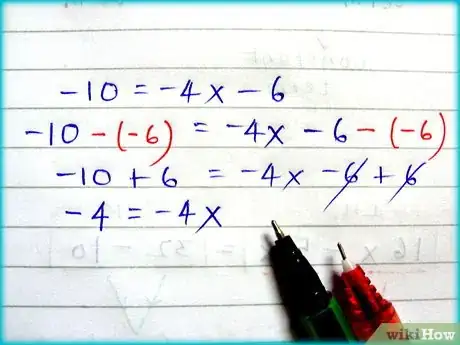 -10 = -4x - 6
-10 - (-6) = -4x - 6 - (-6)
-10 + 6 = -4x - 6 + 6
-4 = -4x
wikiHow